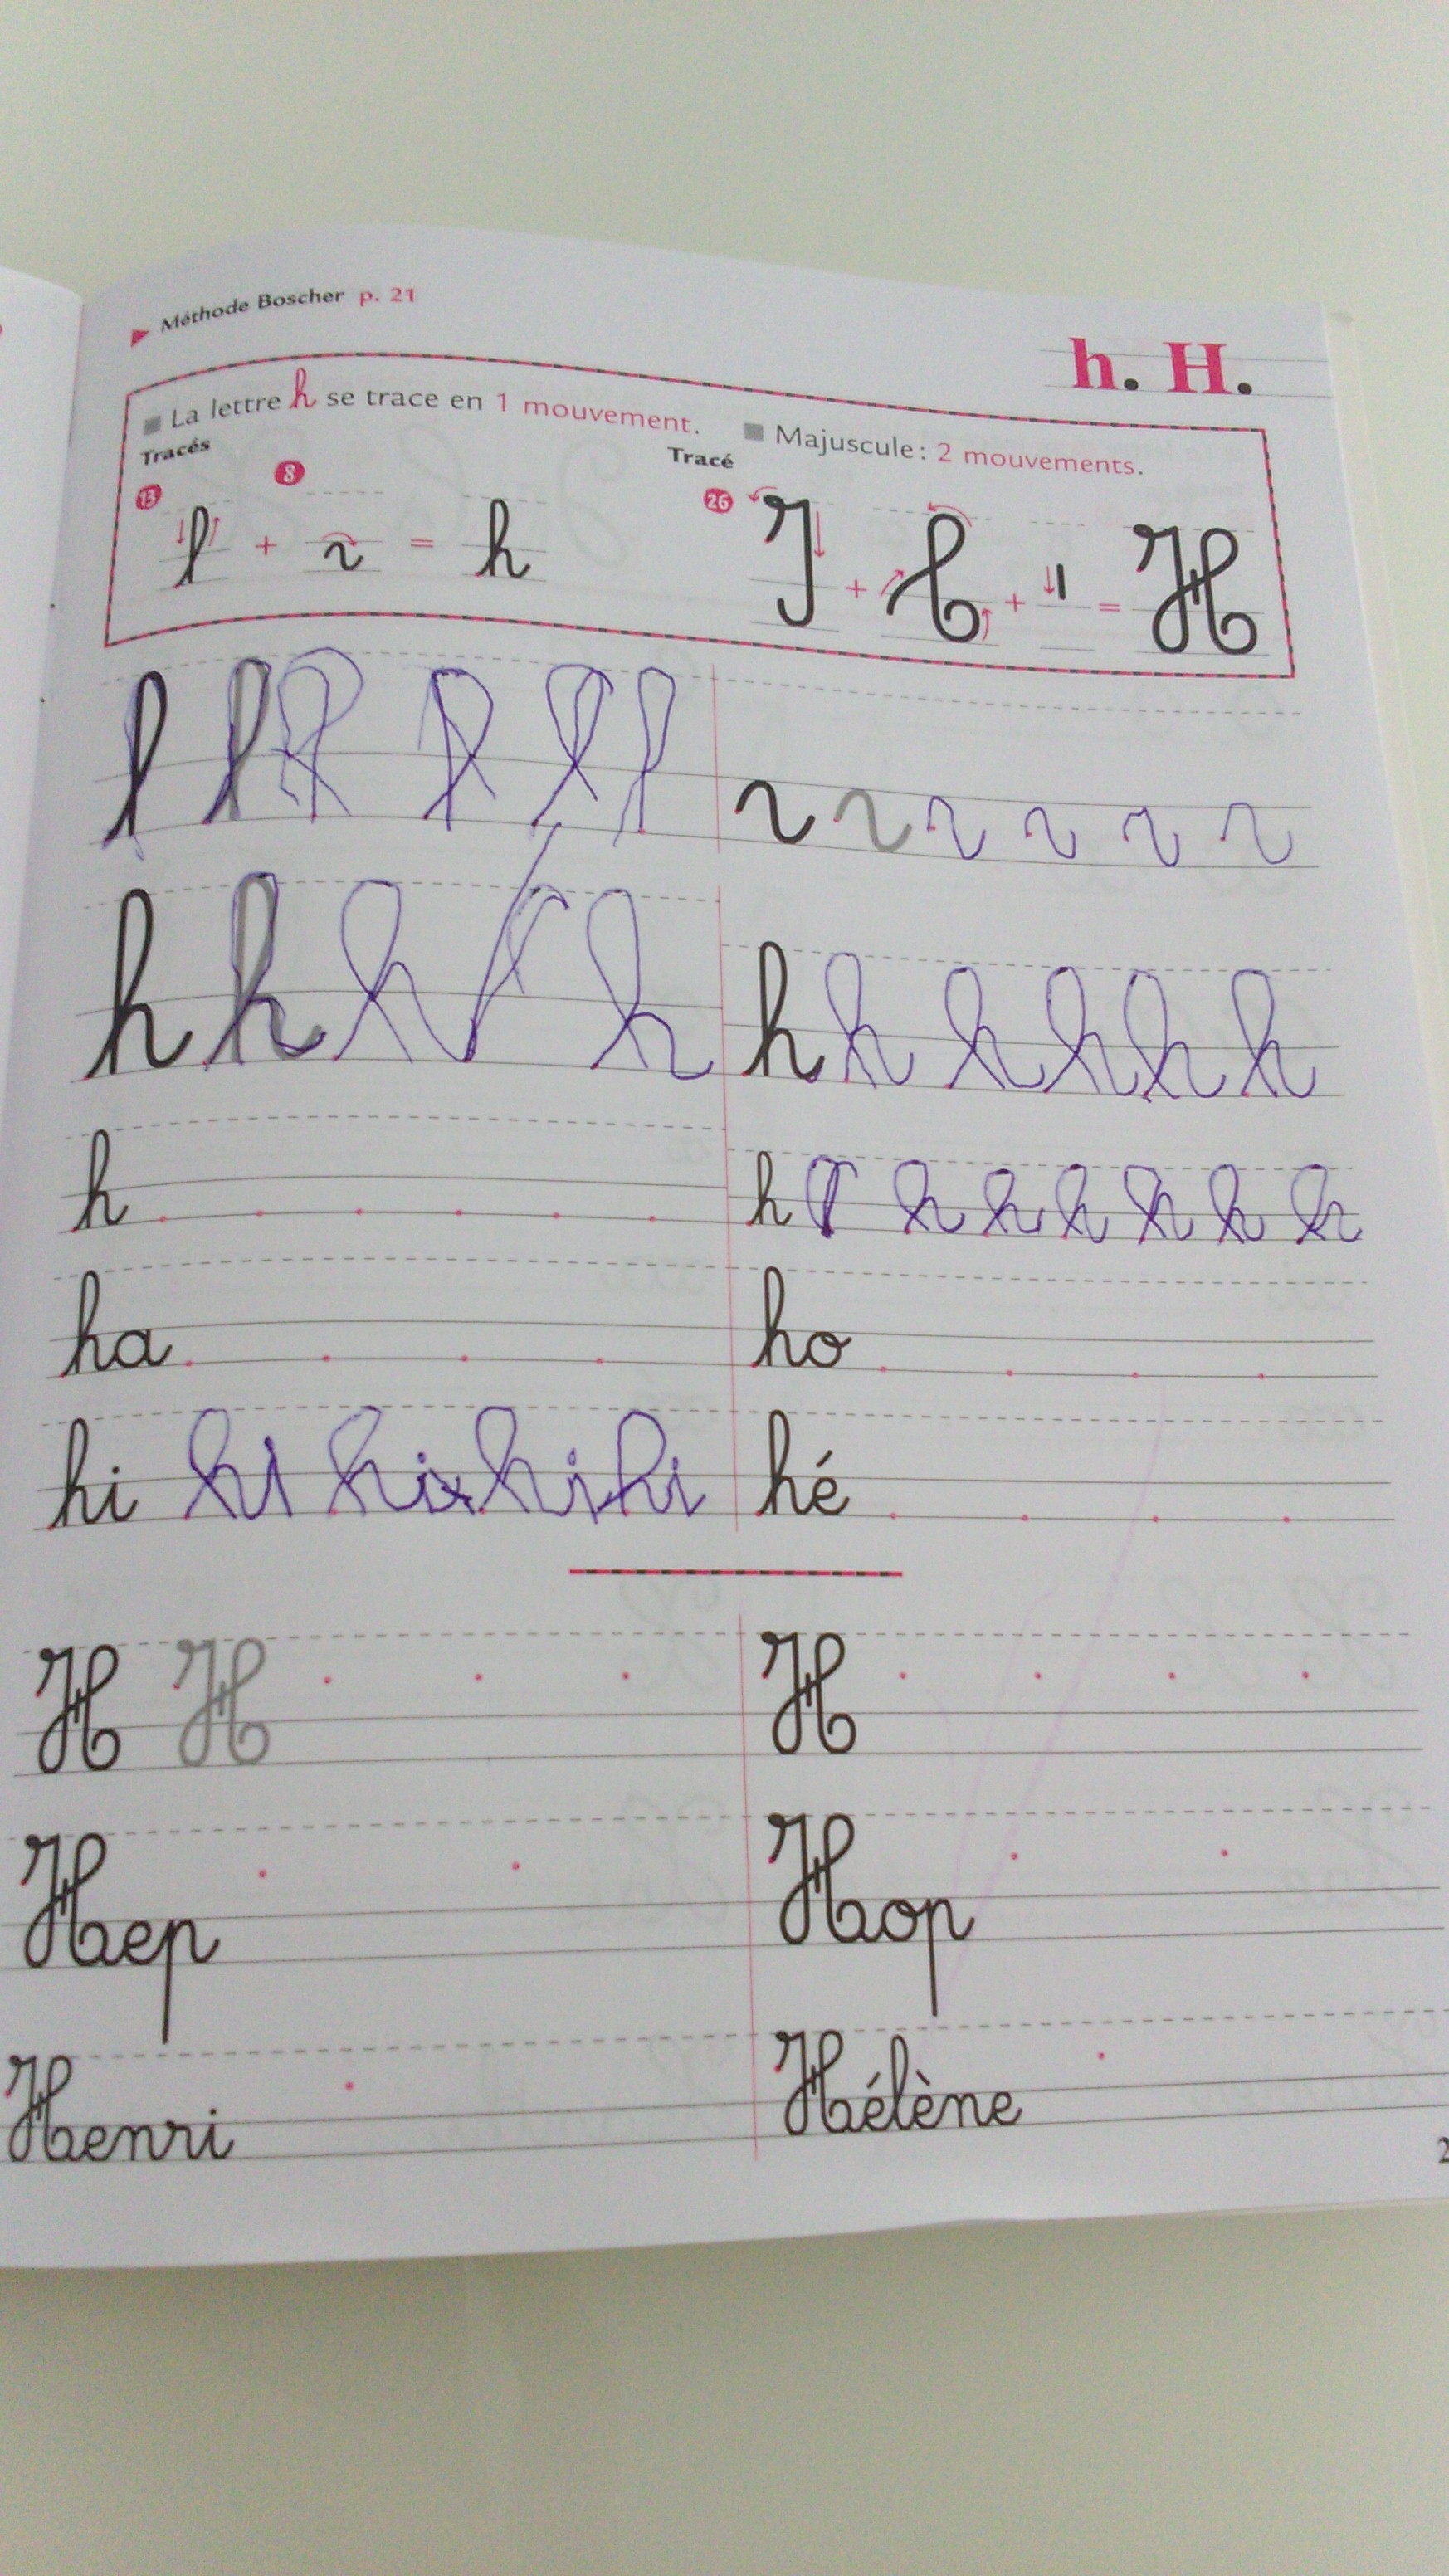 Méthode Boscher p. 21
h. H.
La lettre h se trace en 1 mouvement.
Majuscule : 2 mouvements.
Tracés
Tracé
13
8
26
+ = h
+ + = H
h h h h h h h h h h
h h h h h h h h
ha ho
hi hi hi hi hi hé
H H H
Hep Hop
Henri Hélène
2